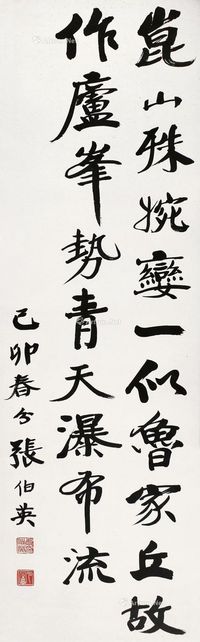 崑山殊婉孌一似魯家丘故
作廬峯勢青天瀑布流
己卯春分張伯英